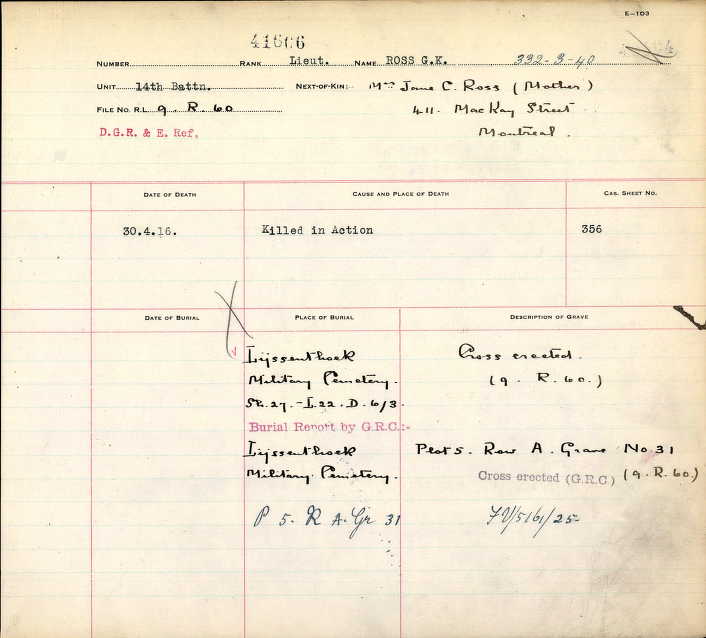 E-103
41606
NUMBER RANK Lieut. NAME ROSS G.K. 332-3-40
UNIT 14th Battn. NEXT-OF-KIN:- Mrs Jane C. Ross (Mother)
FILE NO. R.L. 9. R. 60 411. MacKay Street
D.G.R. & E. Ref. Montreal.
DATE OF DEATH CAUSE AND PLACE OF DEATH CAS. SHEET NO.
30.4.16. Killed in Action 356
DATE OF BURIAL PLACE OF BURIAL DESCRIPTION OF GRAVE
Lijssenthoek Cross erected.
Military Cemetery. (9. R. 60.)
Sh. 27. - L. 22. D. 6/3.
Burial Report by G.R.C.:-
Lijssenthoek Plot 5. Row A. Grave No. 31
Military Cemetery. Cross erected (G.R.C) (9. R. 60.)
P 5. R A. Gr 31